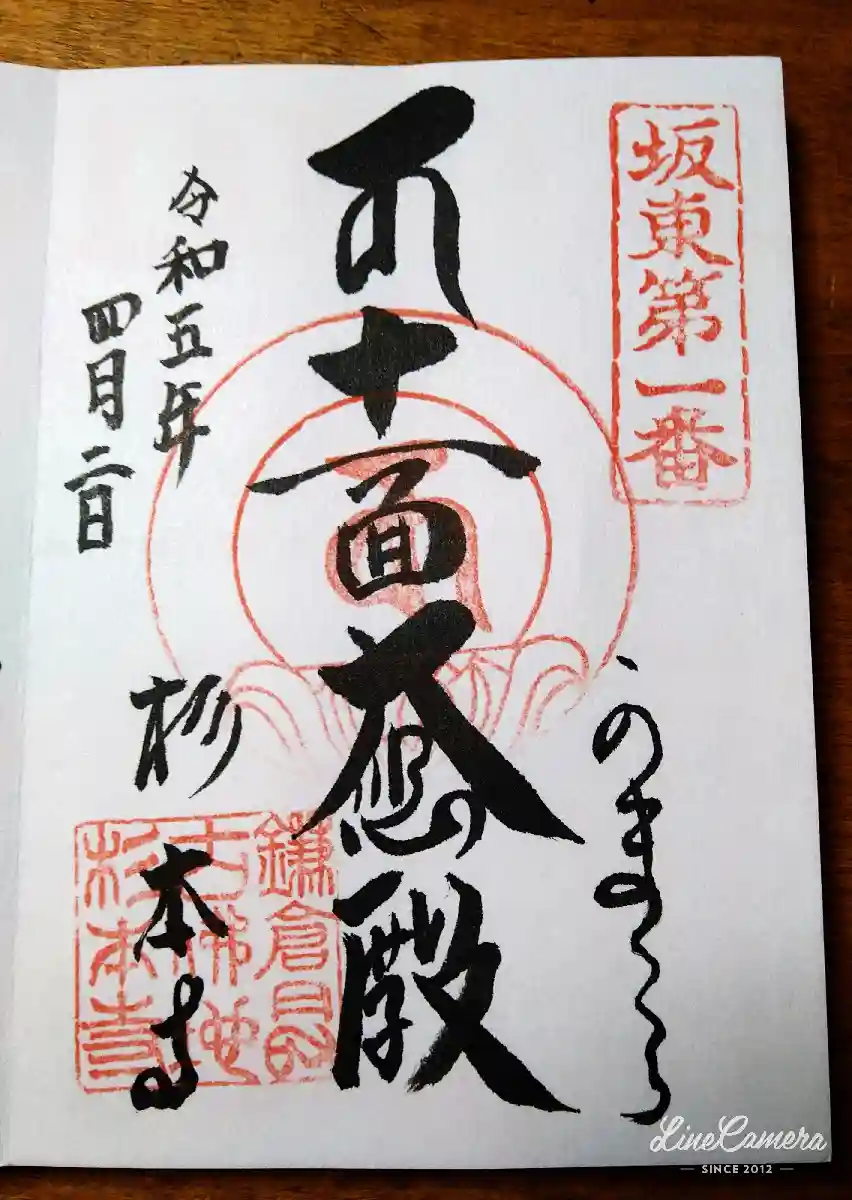 坂東第一番
かまくら
十一面大悲殿
令和五年
四月二日
杉本寺
鎌倉最
古佛地
杉本寺
LineCamera
SINCE 2012